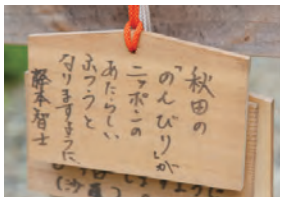 秋田の
「のんびり」が
ニッポンの
あたらしい
ふつうと
なりますように
藤本智士